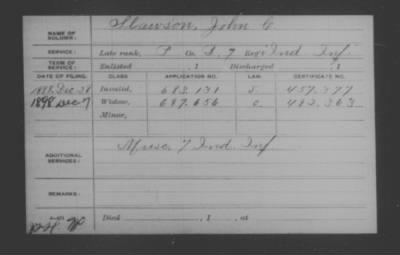 NAME OF SOLDIER: Slawson, John C
SERVICE: Late rank, P Co. I, 7 Reg't Ind Inf
TERM OF SERVICE: Enlisted , 1 Discharged , 1
DATE OF FILING. CLASS. APPLICATION NO. LAW. CERTIFICATE NO.
1888 Dec 28 Invalid, 683.131 457.377
1898 Dec 7 Widow, 687.656 482.363
Minor,
ADDITIONAL SERVICES: Musc. 7 Ind. Inf
REMARKS:
Died , 1 , at